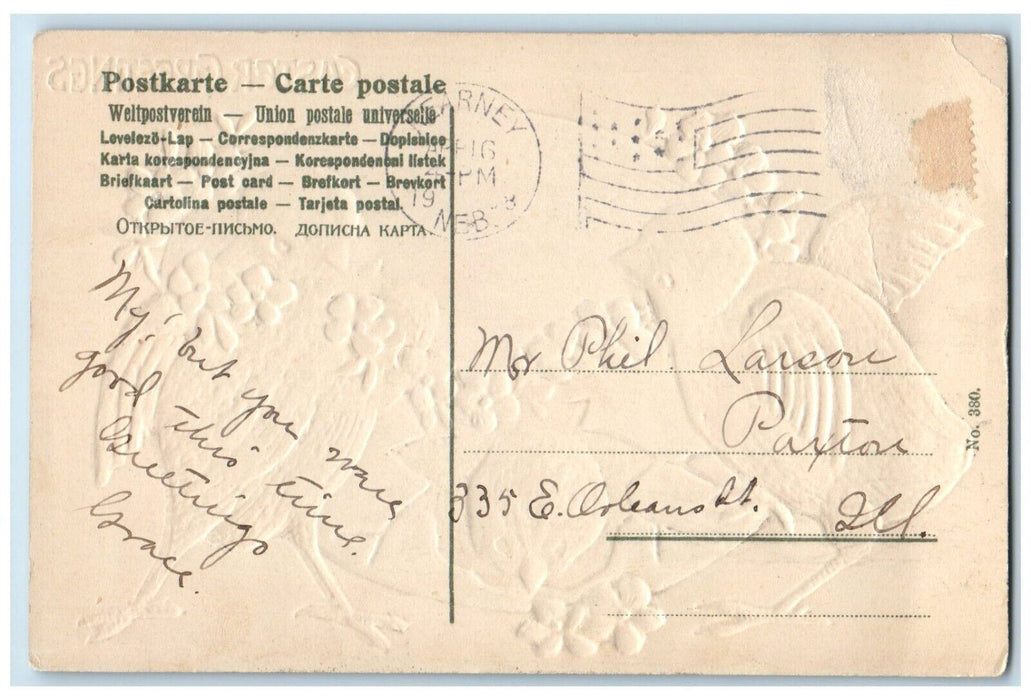 Postkarte — Carte postale
Weltpostverein — Union postale universelle
Levelező-Lap — Correspondenzkarte — Dopisnice
Karta korespondencyjna — Korespondenční lístek
Briefkaart — Post card — Brefkort — Brevkort
Cartolina postale — Tarjeta postal.
ОТКРЫТОЕ-ПИСЬМО. ДОПИСНА КАРТА.
EASTER GREETINGS
KEARNEY
APR 16
4-PM
19 8
NEB.
My! but you were
good this time.
Greetings
Grace.
Mr Phil. Larson
Paxton
335 E. Orleans St. Ill.
No. 380.